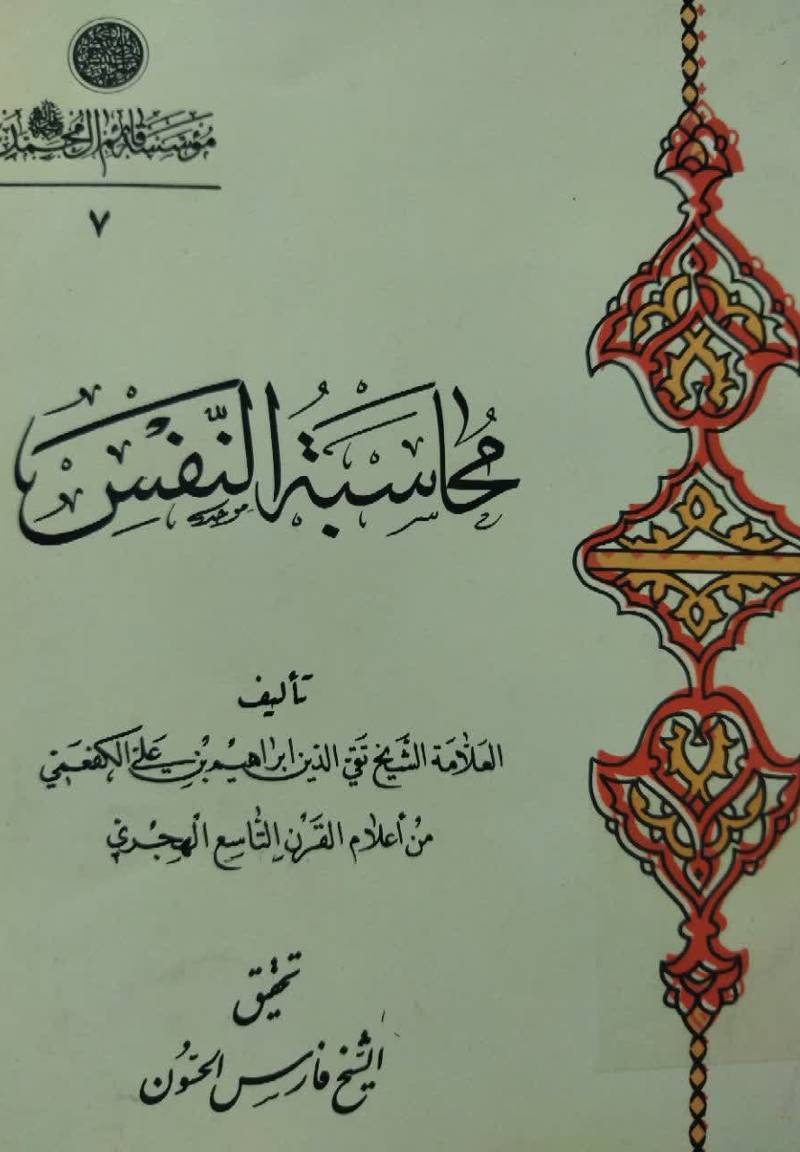 مؤسسة قائم آل محمد
٧
مُحَاسَبَةُ النَّفْسِ
تأليف
العلّامة الشيخ تقي الدين ابراهيم بن علي الكفعمي
من أعلام القرن التاسع الهجري
تحقيق
الشيخ فارس الحسّون